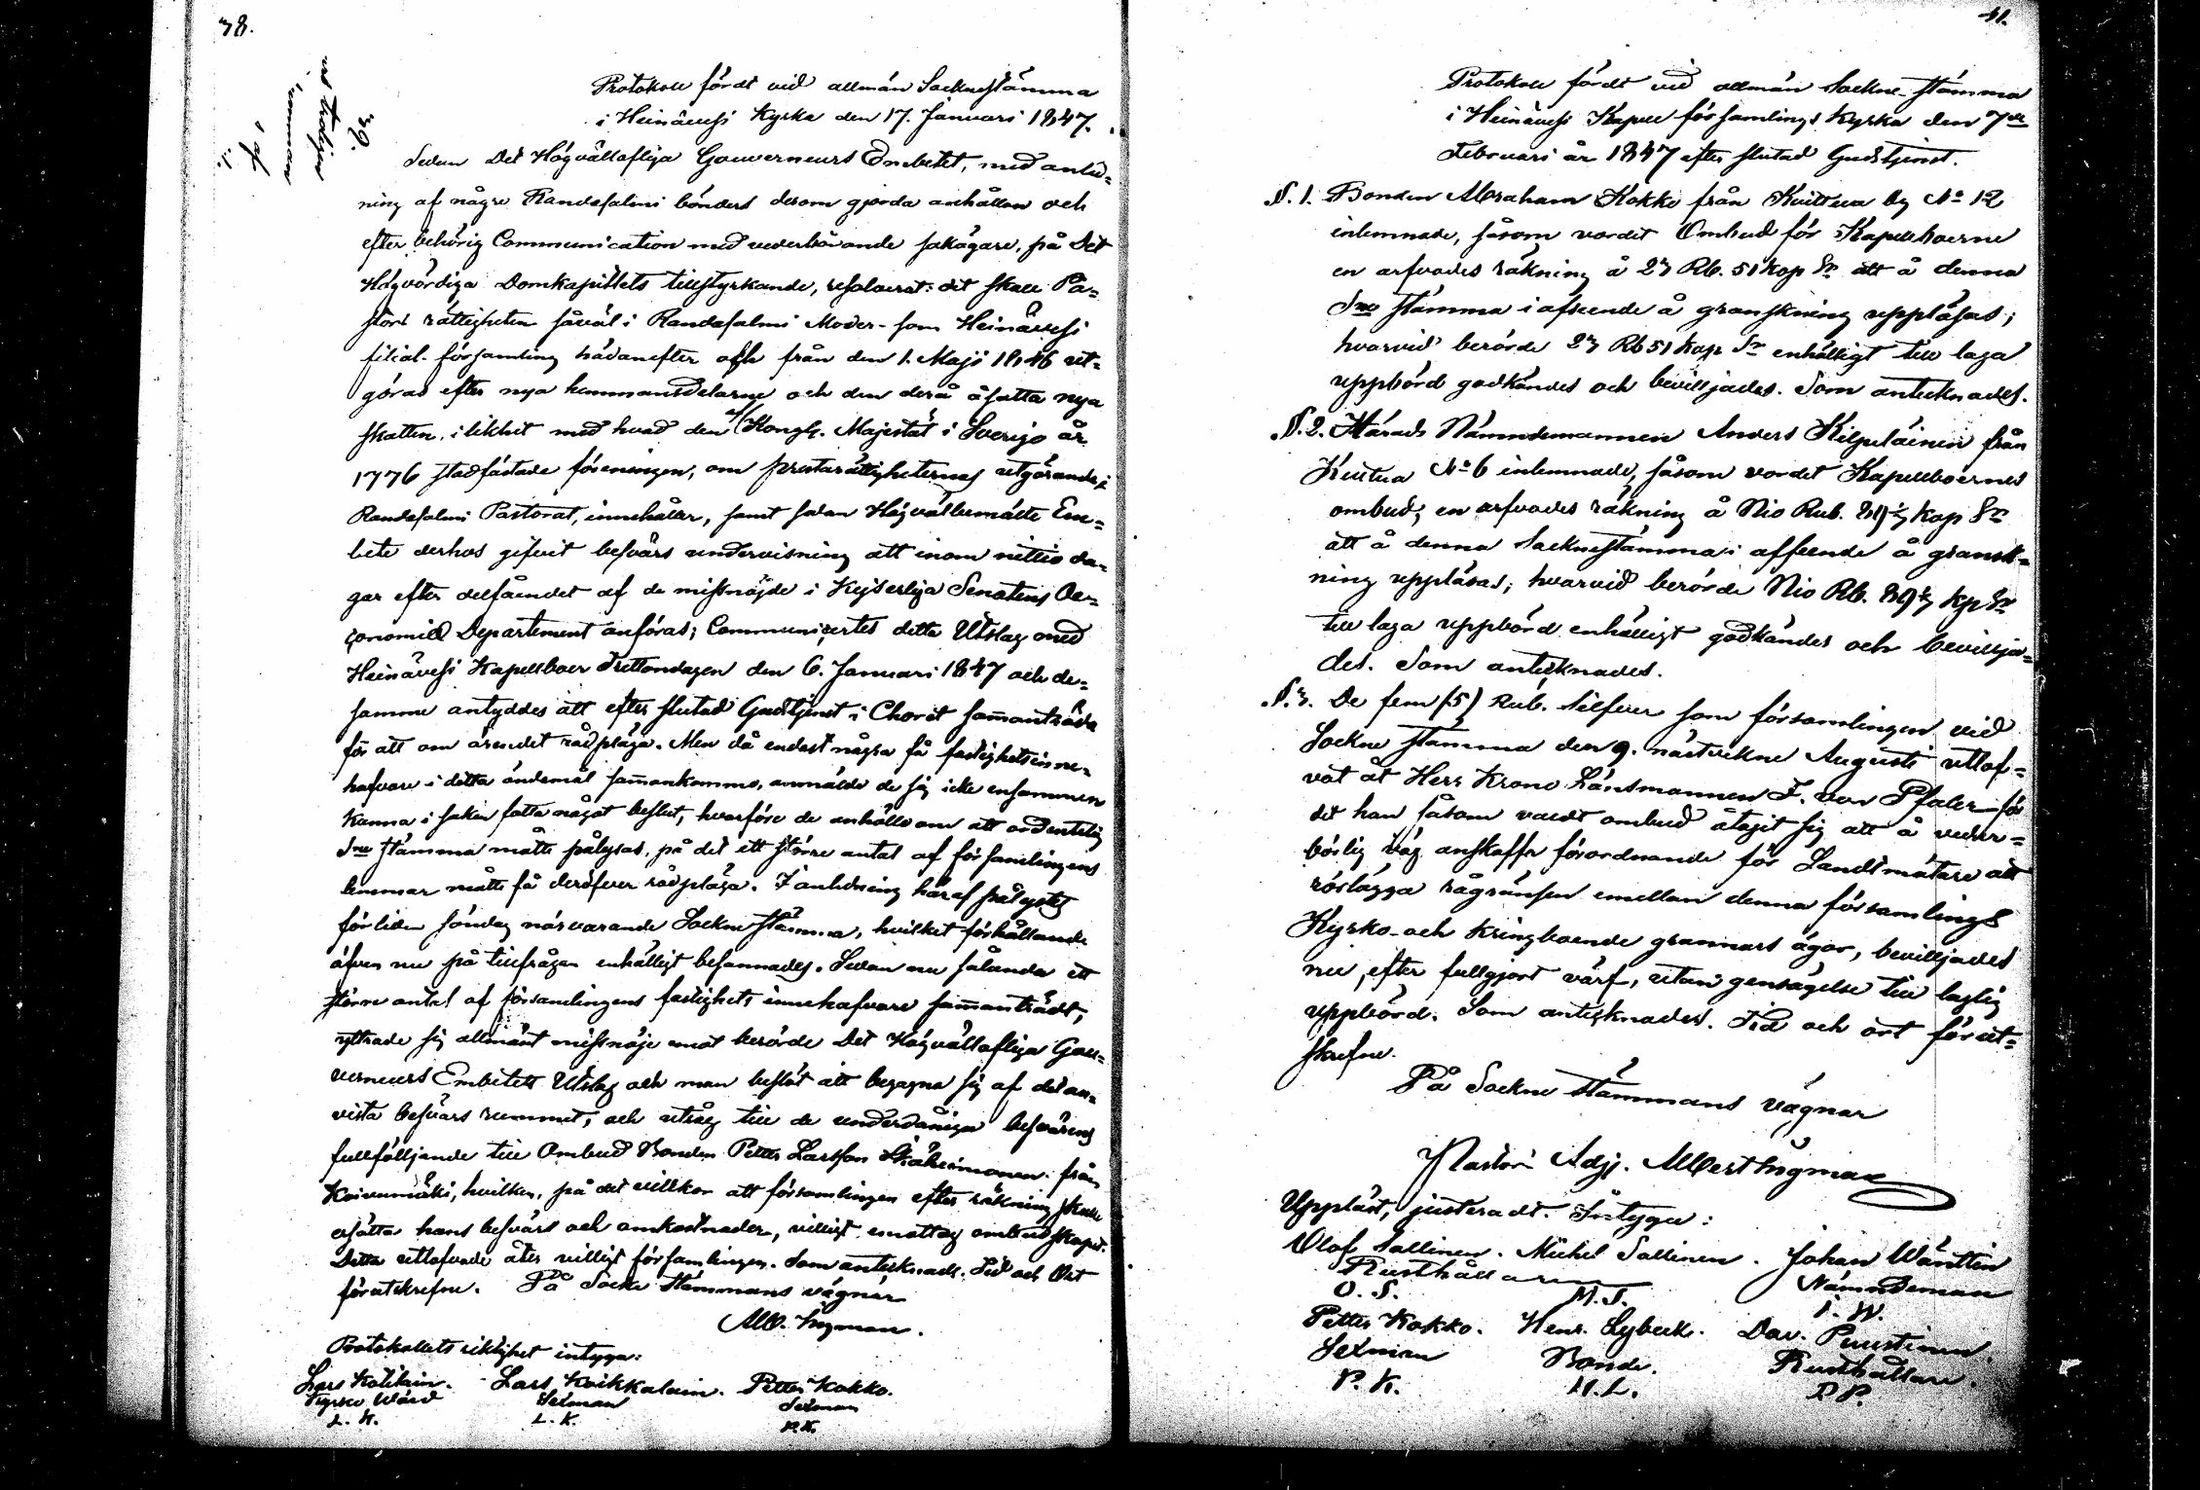 38.
39.
Protokoll fördt vid allmän Socknestämma
i Heinävesi Kyrka den 17. Januari 1847.
Sedan Det Högvällofliga Gouverneurs Embetet, med anled=
ning af någre Randasalmi bönders derom gjorda anhållan och
efter behörig Communication med vederbörande sakägare, på Det
Högvördiga Domkapitlets tillstyrkande, resolverat: det skall Pa=
stors rättigheten såväl i Randasalmi Moder- som Heinävesi
filial-församling hädanefter och från den 1. Maji 1846 ut=
göras efter nya hemmansdelarne och den derå åsatta nya
skatten, i likhet med hvad den af Kongl. Majestät i Sverige år
1776 stadfästade föreningen, om prestarättigheternas utgörande i
Randasalmi Pastorat, innehåller, samt sedan Högvälbemälte Em=
bete derhos gifvit besvärs undervisning att inom nittio da=
gar efter delfåendet af de missnöjde i Kejserliga Senatens Oe=
conomie Departement anföras; Communicertes detta Utslag med
Heinävesi Kapellboer Trettondagen den 6. Januari 1847 och de=
samme antyddes att efter slutad Gudstjenst i Choret sammanträda
för att om ärendet rådpläga. Men då endast några få fastighetsinne=
hafvare i detta ändemål sammankommo, anmälde de sig icke ensamme
kunna i saken fatta något beslut, hvarföre de anhöllo om att ordentelig
Sne stämma måtte pålysas, på det ett större antal af församlingens
lemmar måtte få deröfver rådpläga. I anledning häraf pålystes
förliden söndag närvarande Sockne Stämma, hvilket förhållande
äfven nu på tillfrågan enhälligt besannades. Sedan nu sålunda ett
större antal af församlingens fastighets innehafvare sammanträdt,
yttrade sig allmänt missnöje emot berörde Det Högvällofliga Gou=
verneurs Embetets Utslag och man beslöt att begagna sig af det an=
vista besvärs rummet, och utsåg till de underdåniga besvärens
fullföljande till Ombud Bonden Petter Larsson från
Koivumäki, hvilken, på det villkor att församlingen efter räkning skall
ersätta hans besvär och omkostnader, villigt emottog ombudskapet.
Detta utlofvade åter villigt församlingen. Som antecknads. Tid och Ort
förutskrefne. På Sockne Stämmans vägnar
Alb. Ingman.
Protokollets riktighet intyga:
Lars Kotilain. Lars Koikkalain. Petter Kokko.
Kyrko Wärd Sexman Sexman
L. K. L. K. P. K.
41.
Protokoll fördt vid allmän Sockne-stämma
i Heinävesi Kapell församlings Kyrka den 7de
Februari år 1847 efter slutad Gudstjenst.
§. 1. Bonden Abraham Kokko från Kuittua by No 12
inlemnade, såsom vordet Ombud för Kapellboerne
en arfvodes räkning å 23 Rb. 51 kop Sr att å denna
Sne stämma i afseende å granskning uppläsas;
hvarvid berörde 23 Rb 51 kop Sr enhälligt till laga
uppbörd godkändes och beviljades. Som antecknades.
§. 2. Härads Nämndemannen Anders Kilpeläinen från
No 6 inlemnade, såsom vordet Kapellboernes
ombud, en arfvodes räkning å Nio Rub. kop Sr
att å denna Sockne stämma i afseende å gransk=
ning uppläsas; hvarvid berörde Nio Rb. kp Sr
till laga uppbörd enhälligt godkändes och bevilja=
des. Som antecknades.
§. 3. De fem (5) Rub. Silfver som församlingen vid
Sockne stämma den 9. nästvekne Augusti utlof=
vat åt Herr Krono Länsmannen F. von Pfaler för
det han såsom valdt ombud åtagit sig att å veder=
börlig väg anskaffa förordnande för Landtmätare att
röslägga rågränsen emellan denna församlings
Kyrko- och kringboende grannars ägor, beviljades
nu, efter fullgjort värf, utan gensägelse till laglig
uppbörd. Som antecknades. Tid och ort förut=
skrefne.
På Sockne stämmans vägnar
Pastors Adj. Albert Ingman
Uppläst, justeradt. Intyga:
Olof Sallinen. Michel Sallinen. Johan Wänttin
Rusthållare Nämndeman
O. S. M. S. J. W.
Petter Kokko. Henr. Lybeck. Dav. Puustinen.
Sexman Bonde. Rusthållare.
P. K. H. L. D. P.